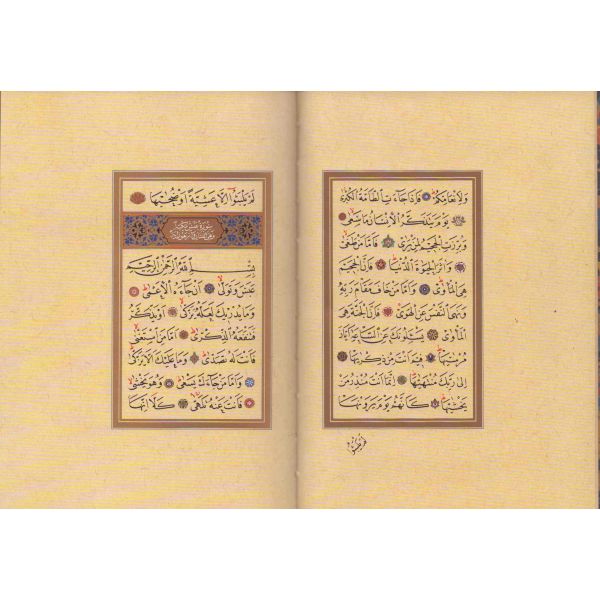 وَلِاَنْعَامِكُمْ فَاِذَا جَاءَتِ الطَّامَّةُ الْكُبْرٰى
يَوْمَ يَتَذَكَّرُ الْاِنْسَانُ مَا سَعٰى
وَبُرِّزَتِ الْجَحِيمُ لِمَنْ يَرٰى فَاَمَّا مَنْ طَغٰى
وَاٰثَرَ الْحَيٰوةَ الدُّنْيَا فَاِنَّ الْجَحِيمَ
هِيَ الْمَأْوٰى وَاَمَّا مَنْ خَافَ مَقَامَ رَبِّهِ
وَنَهَى النَّفْسَ عَنِ الْهَوٰى فَاِنَّ الْجَنَّةَ هِيَ
الْمَأْوٰى يَسْـَٔلُونَكَ عَنِ السَّاعَةِ اَيَّانَ
مُرْسٰيهَا فِيمَ اَنْتَ مِنْ ذِكْرٰيهَا
اِلٰى رَبِّكَ مُنْتَهٰيهَا اِنَّمَا اَنْتَ مُنْذِرُ مَنْ
يَخْشٰيهَا كَاَنَّهُمْ يَوْمَ يَرَوْنَهَا
لَمْ يَلْبَثُوا اِلَّا عَشِيَّةً اَوْ ضُحٰيهَا
سورة عبس مكية
بِسْمِ اللّٰهِ الرَّحْمٰنِ الرَّحِيمِ
عَبَسَ وَتَوَلّٰى اَنْ جَاءَهُ الْاَعْمٰى
وَمَا يُدْرِيكَ لَعَلَّهُ يَزَّكّٰى اَوْ يَذَّكَّرُ
فَتَنْفَعَهُ الذِّكْرٰى اَمَّا مَنِ اسْتَغْنٰى
فَاَنْتَ لَهُ تَصَدّٰى وَمَا عَلَيْكَ اَلَّا يَزَّكّٰى
وَاَمَّا مَنْ جَاءَكَ يَسْعٰى وَهُوَ يَخْشٰى
فَاَنْتَ عَنْهُ تَلَهّٰى كَلَّا اِنَّهَا